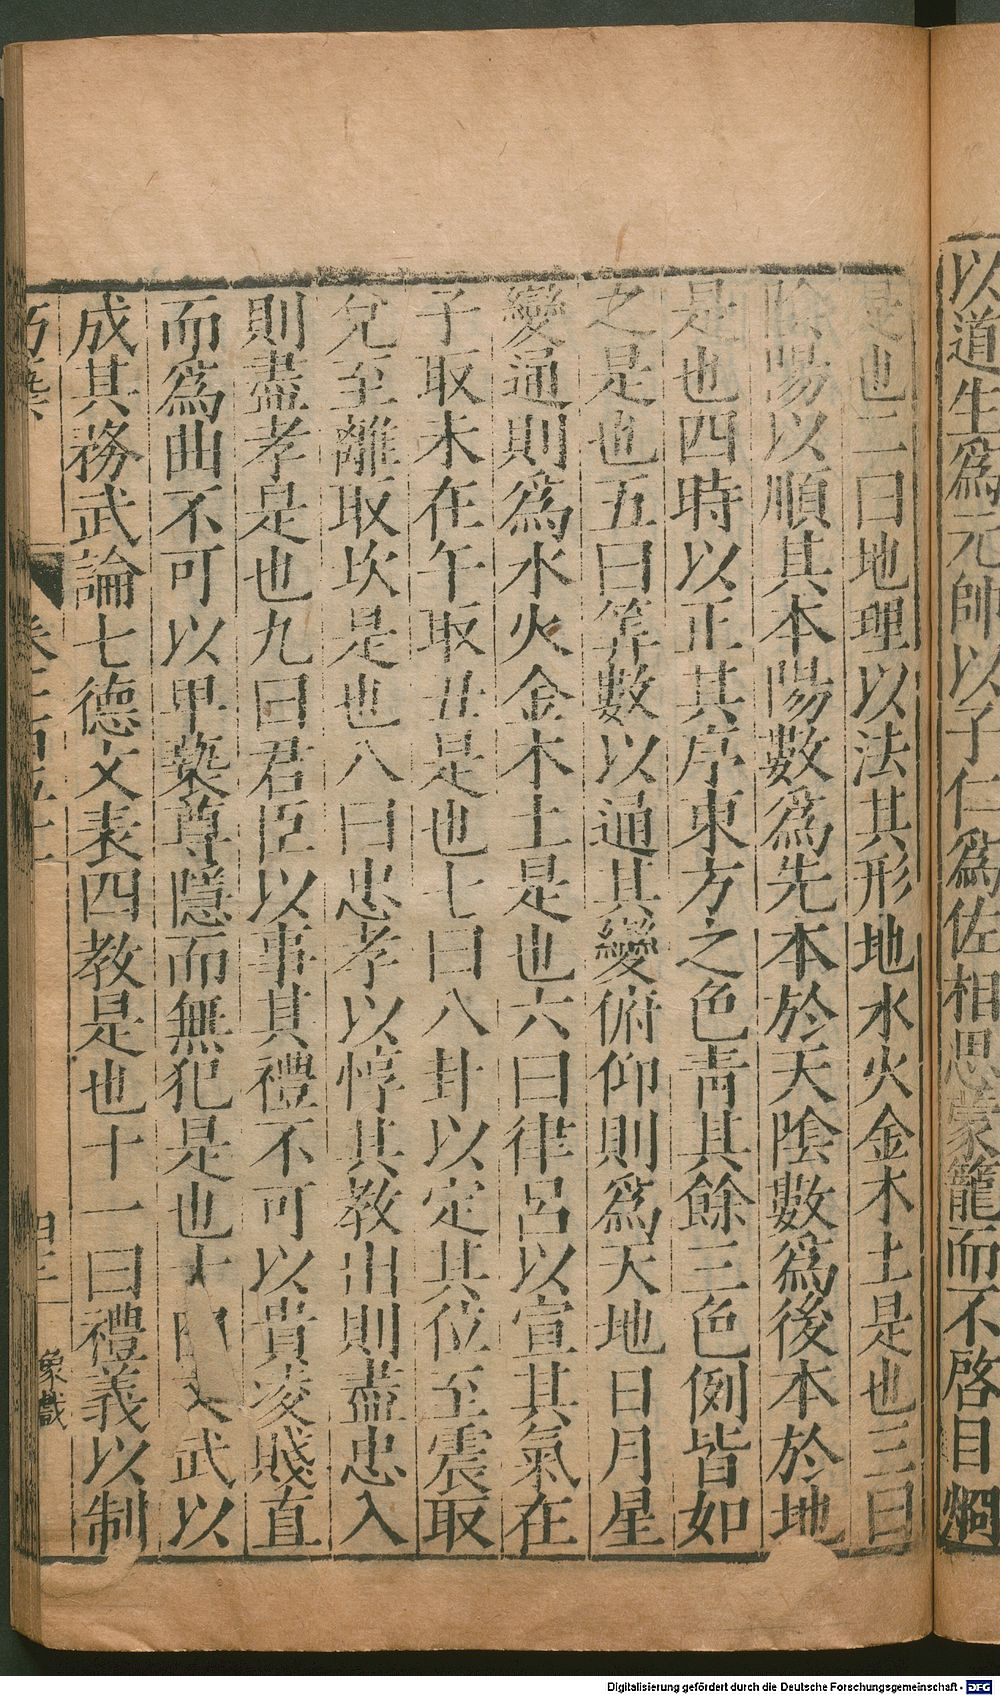 以道生爲元帥以子仁爲佐相思蒙籠而不啓目烱
是也二曰地理以法其形地水火金木土是也三曰
陰陽以順其本陽數爲先本於天陰數爲後本於地
是也四時以正其序東方之色靑其餘三色例皆如
之是也五曰筭數以通其變俯仰則爲天地日月星
變通則爲水火金木土是也六曰律呂以宣其氣在
子取未在午取丑是也七曰八卦以定其位至震取
兌至離取坎是也八曰忠孝以惇其教出則盡忠入
則盡孝是也九曰君臣以事其禮不可以貴凌賤直
而爲曲不可以卑𣙙尊隱而無犯是也十曰文武以
成其務武論七德文表四教是也十一曰禮義以制
卷三百五十一
四三
象戲
Digitalisierung gefördert durch die Deutsche Forschungsgemeinschaft - DFG